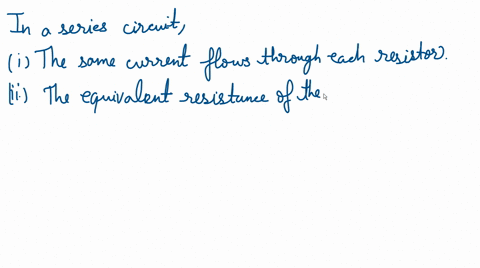 In a series circuit,
(i) The same current flows through each resistor.
(ii.) The equivalent resistance of the